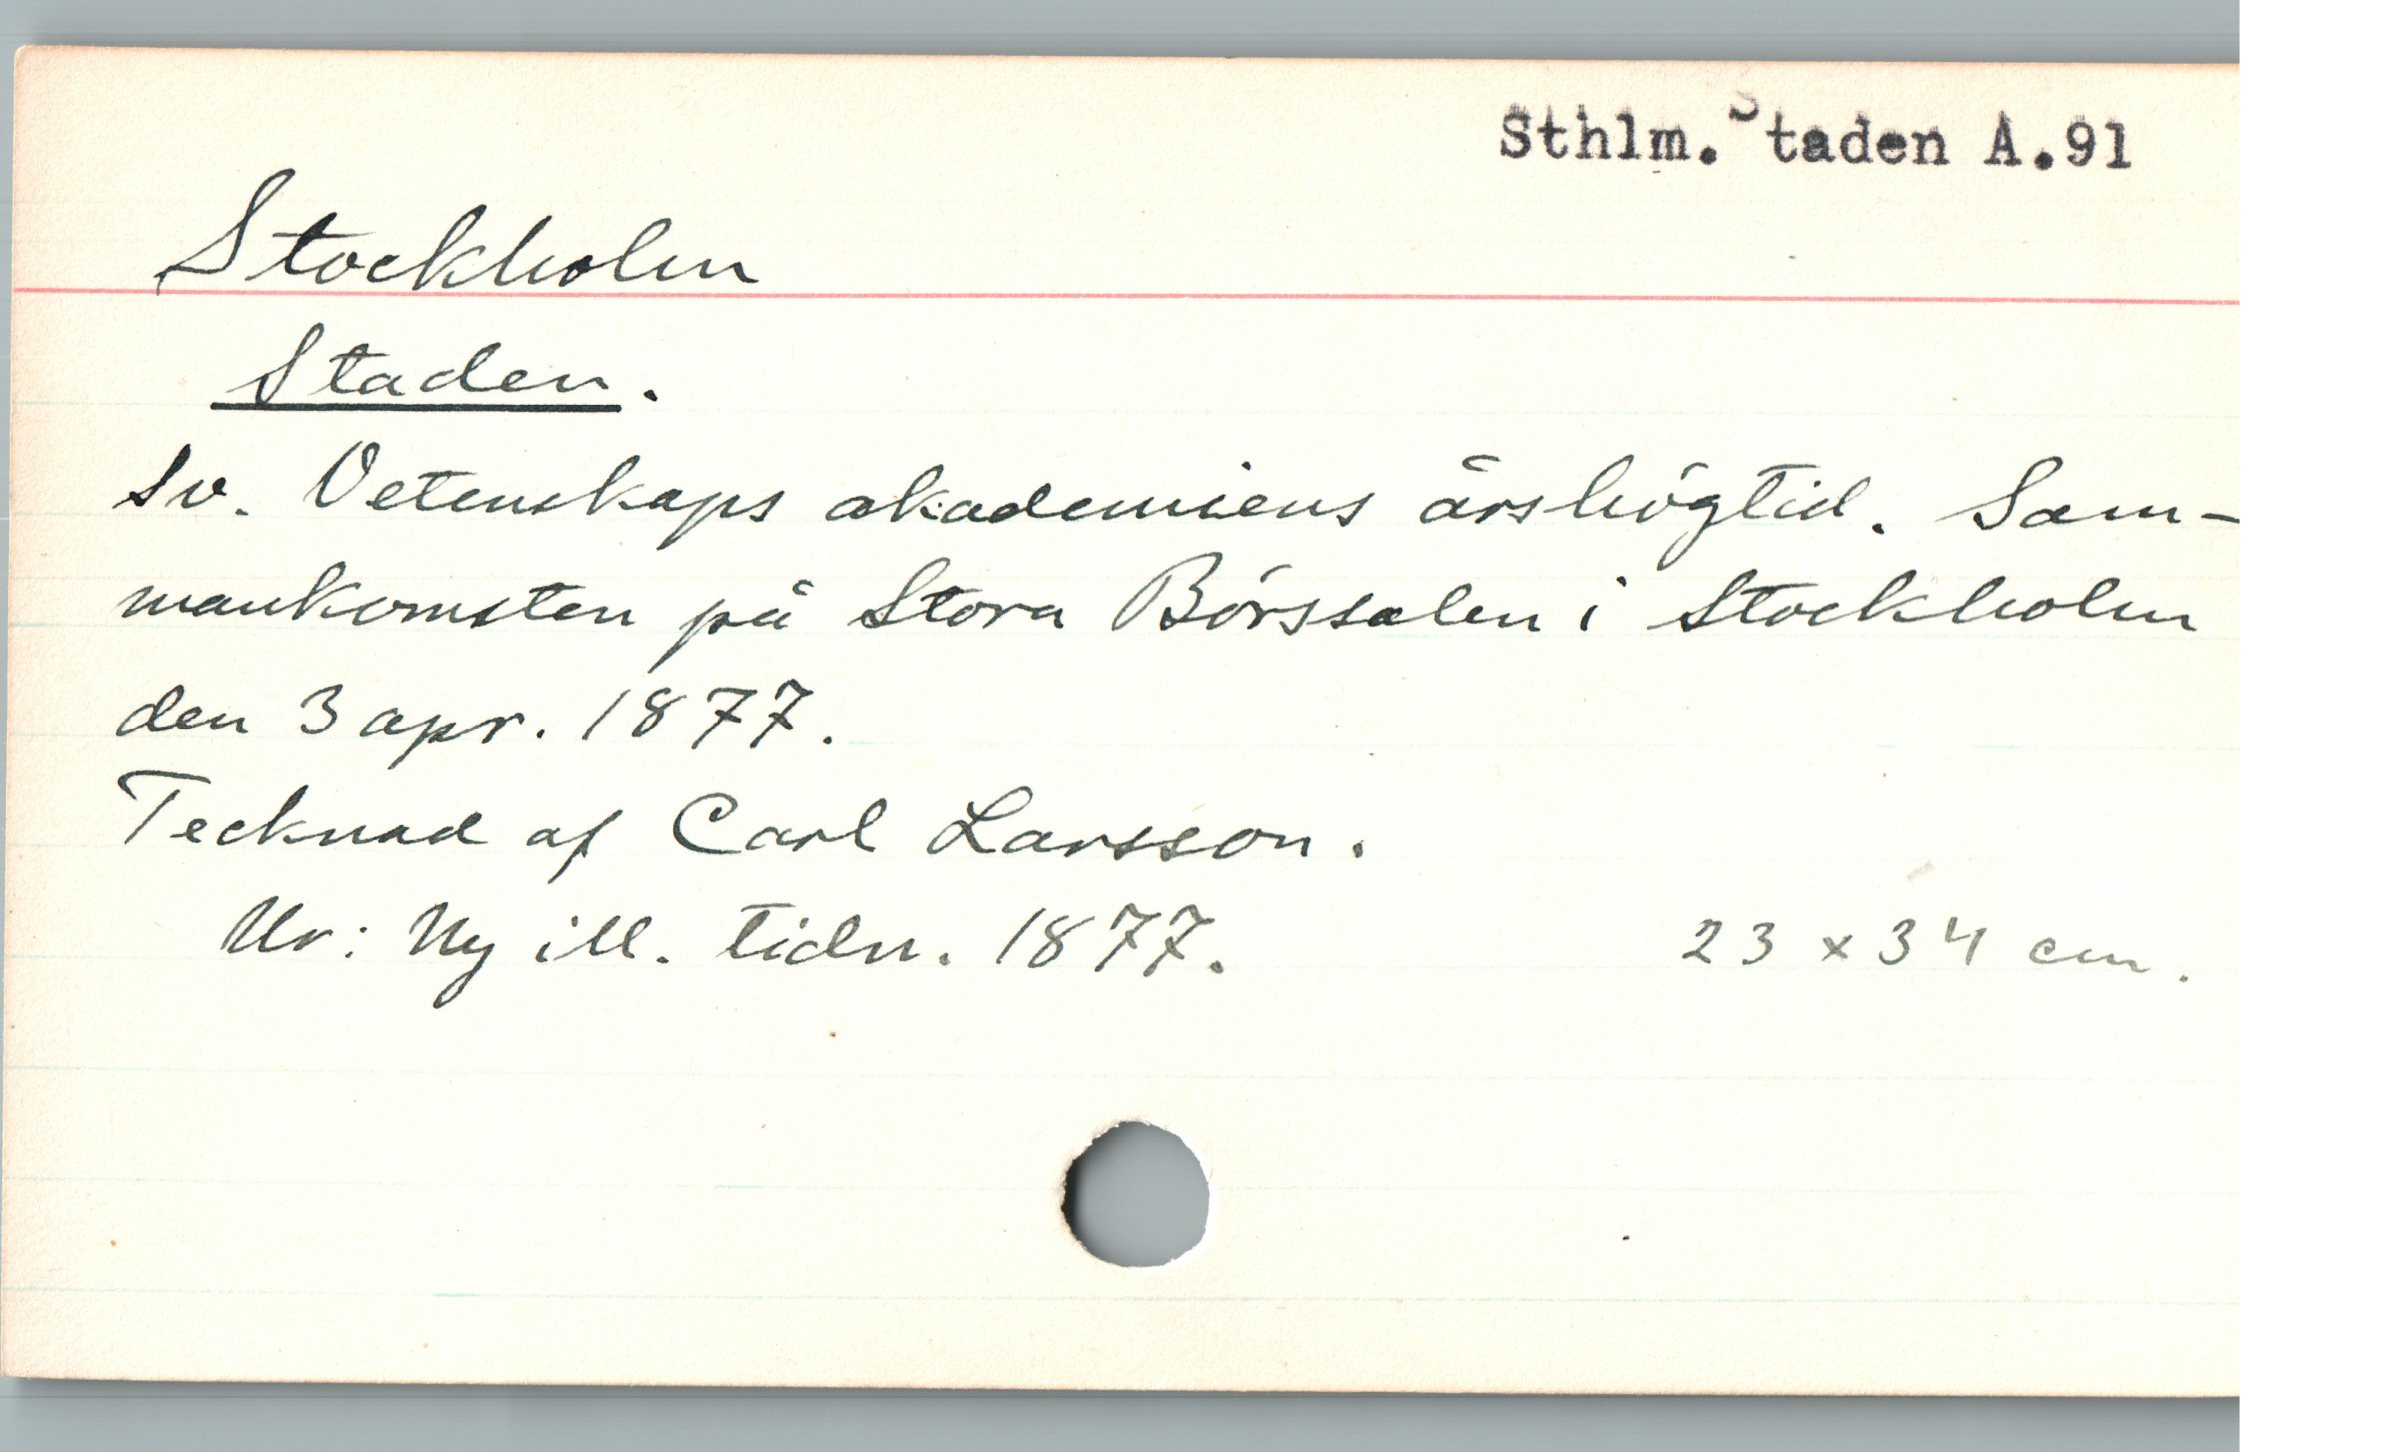 Sthlm. Staden A.91
Stockholm
Staden.
Sv. Vetenskaps akademiens årshögtid. Sam-
mankomsten på Stora Börssalen i Stockholm
den 3 apr. 1877.
Tecknad af Carl Larsson.
Ur: Ny ill. tidn. 1877. 23 x 34 cm.